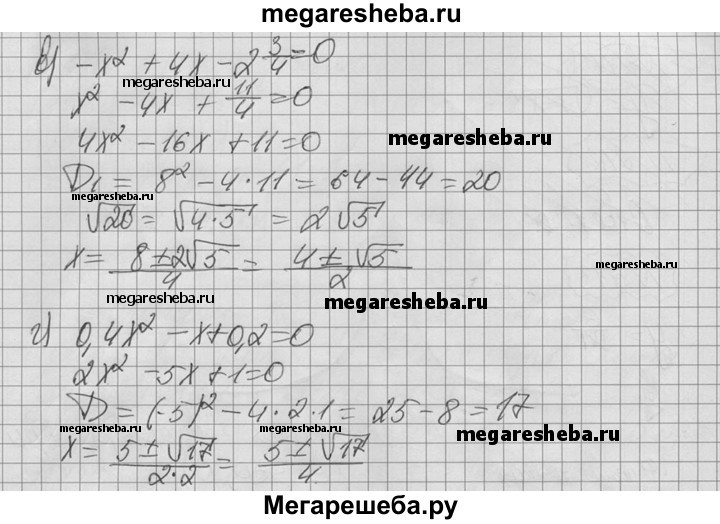 megaresheba.ru
в) -x² + 4x - 2 3/4 = 0
megaresheba.ru
x² - 4x + 11/4 = 0
megaresheba.ru
4x² - 16x + 11 = 0
D₁ = 8² - 4·11 = 64 - 44 = 20
megaresheba.ru
√20 = √4·5 = 2√5
x = 8±2√5/4 = 4±√5/2
megaresheba.ru
megaresheba.ru
megaresheba.ru
г) 0,4x² - x + 0,2 = 0
megaresheba.ru
2x² - 5x + 1 = 0
D = (-5)² - 4·2·1 = 25 - 8 = 17
megaresheba.ru
megaresheba.ru
megaresheba.ru
x = 5±√17/2·2 = 5±√17/4
Мегарешеба.ру